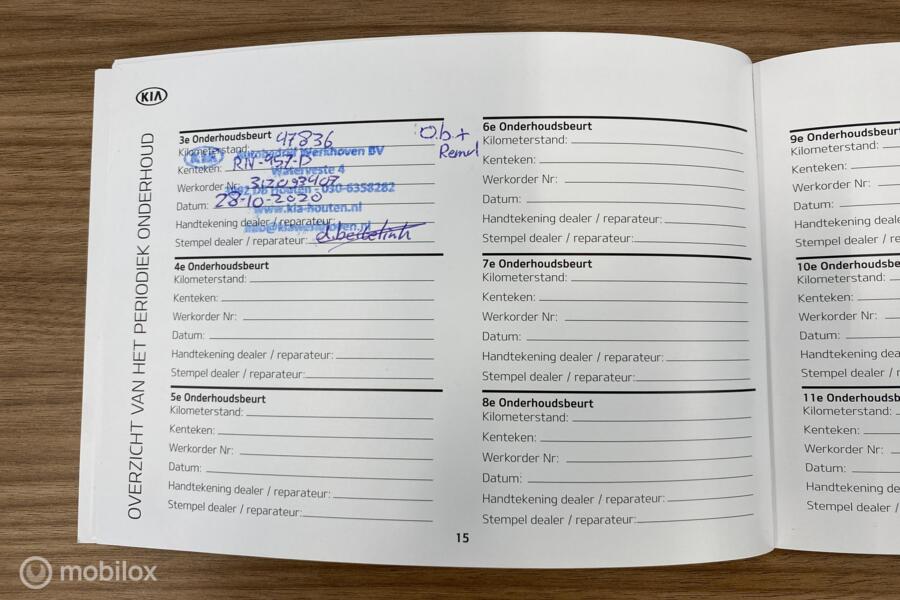 KIA
OVERZICHT VAN HET PERIODIEK ONDERHOUD
3e Onderhoudsbeurt
Kilometerstand: 47836
Kenteken: RN-957-D
Werkorder Nr: 312093407
Datum: 28-10-2020
Handtekening dealer / reparateur:
Stempel dealer / reparateur:
KIA
Autobedrijf Werkhoven BV
Waterveste 4
DB Houten - 030-6358282
www.kia-houten.nl
O.b +
4e Onderhoudsbeurt
Kilometerstand:
Kenteken:
Werkorder Nr:
Datum:
Handtekening dealer / reparateur:
Stempel dealer / reparateur:
5e Onderhoudsbeurt
Kilometerstand:
Kenteken:
Werkorder Nr:
Datum:
Handtekening dealer / reparateur:
Stempel dealer / reparateur:
6e Onderhoudsbeurt
Kilometerstand:
Kenteken:
Werkorder Nr:
Datum:
Handtekening dealer / reparateur:
Stempel dealer / reparateur:
7e Onderhoudsbeurt
Kilometerstand:
Kenteken:
Werkorder Nr:
Datum:
Handtekening dealer / reparateur:
Stempel dealer / reparateur:
8e Onderhoudsbeurt
Kilometerstand:
Kenteken:
Werkorder Nr:
Datum:
Handtekening dealer / reparateur:
Stempel dealer / reparateur:
15
9e Onderhoudsbeurt
Kilometerstand:
Kenteken:
Werkorder Nr:
Datum:
Handtekening de
Stempel dealer / re
10e Onderhoudsbe
Kilometerstand:
Kenteken:
Werkorder Nr:
Datum:
Handtekening dea
Stempel dealer / r
11e Onderhoudsb
Kilometerstand:
Kenteken:
Werkorder Nr:
Datum:
Handtekening de
Stempel dealer /
mobilox